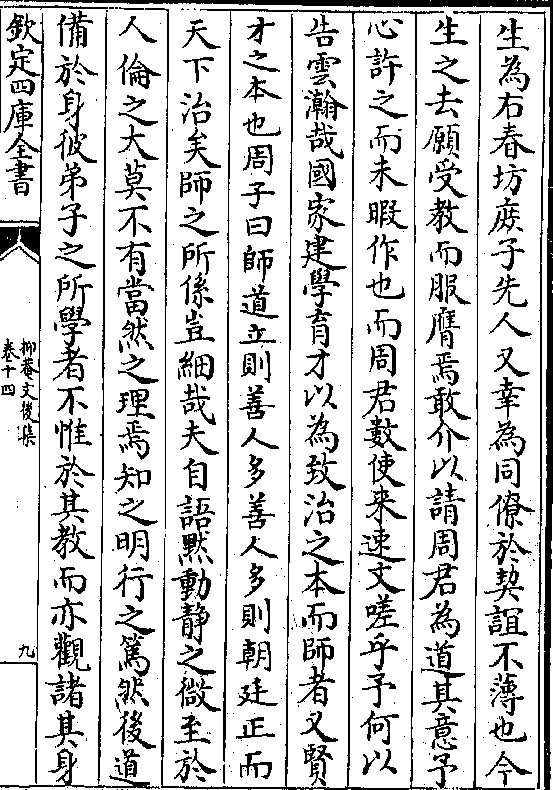 生為右春坊庶子先人又幸為同僚於契誼不薄也今
生之去願受教而服膺焉敢介以請周君為道其意予
心許之而未暇作也而周君數使来速文嗟乎予何以
告雲瀚哉國家建學育才以為致治之本而師者又賢
才之本也周子曰師道立則善人多善人多則朝廷正而
天下治矣師之所係豈細哉夫自語黙動静之微至於
人倫之大莫不有當然之理焉知之明行之篤然後道
備於身彼弟子之所學者不惟於其教而亦觀諸其身
欽定四庫全書
抑菴文後集
卷十四
九